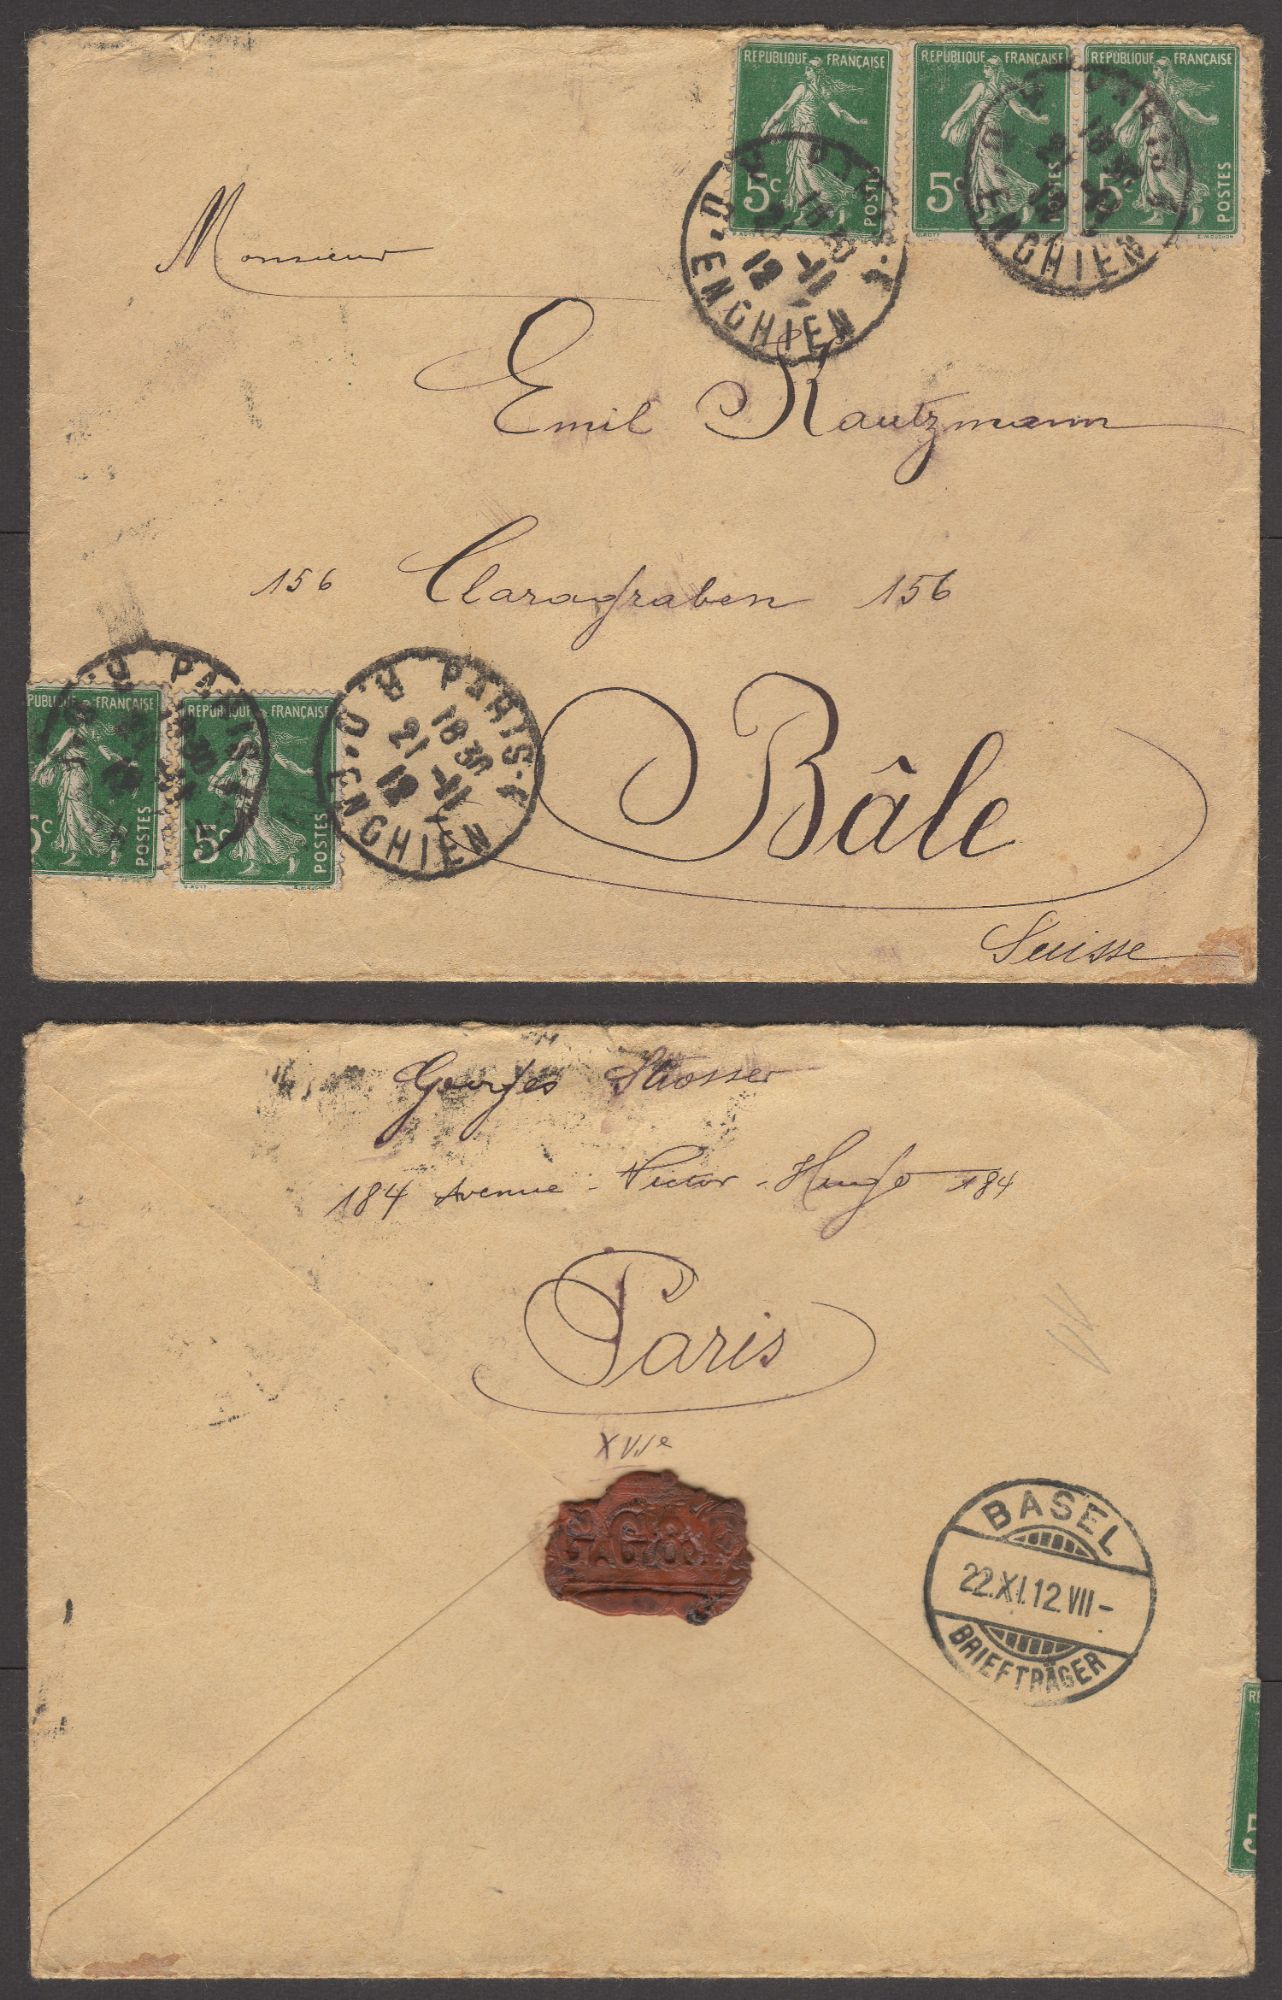 RÉPUBLIQUE FRANÇAISE
5c POSTES
RÉPUBLIQUE FRANÇAISE
5c POSTES
RÉPUBLIQUE FRANÇAISE
5c POSTES
PARIS
18 30
21 -11
12
R. D'ENGHIEN
PARIS
18 30
12
R. D'ENGHIEN
Monsieur
Emil Kautzmann
156 Claragraben 156
Bâle
Suisse
PUBLIQUE FRANÇAISE
5c POSTES
RÉPUBLIQUE FRANÇAISE
5c POSTES
PARIS
R. D'
PARIS
18 30
21 -11
12
R. D'ENGHIEN
Georges Strosser
184 Avenue - Victor - Hugo 184
Paris
XVIe
BASEL
22.XI.12.VII-
BRIEFTRÄGER
RÉ
5